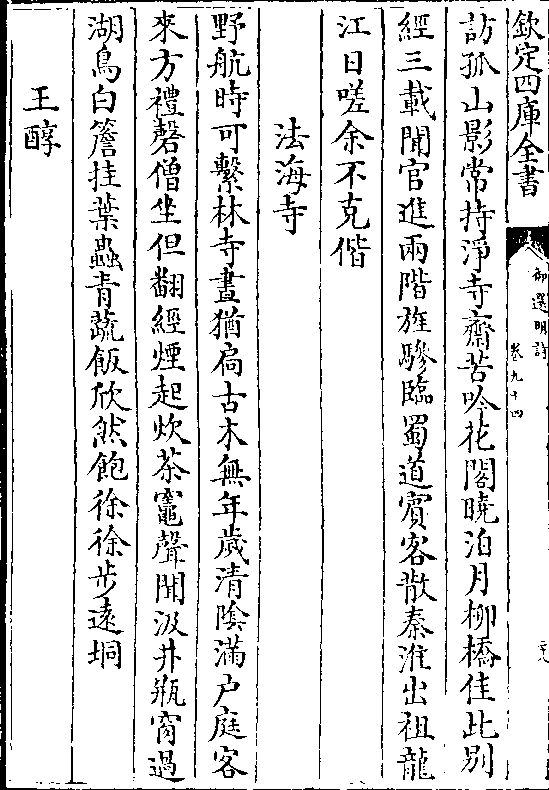 欽定四庫全書
御選明詩
卷九十四
訪孤山影常持淨寺齋苦吟花閣曉泊月柳橋佳此别
經三載聞官進兩階旌驂臨蜀道賓客散秦淮出祖龍
江日嗟余不克偕
法海寺
野航時可繫林寺晝猶扃古木無年歲清陰滿户庭客
來方禮磬僧坐但翻經煙起炊茶竈聲聞汲井瓶窗過
湖鳥白簷挂葉蟲青蔬飯欣然飽徐徐步遠坰
王醇